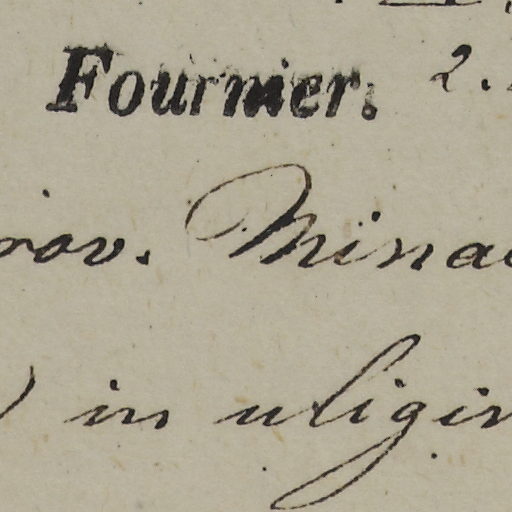 Fournier. 2.
rov. Minae
) in uligin